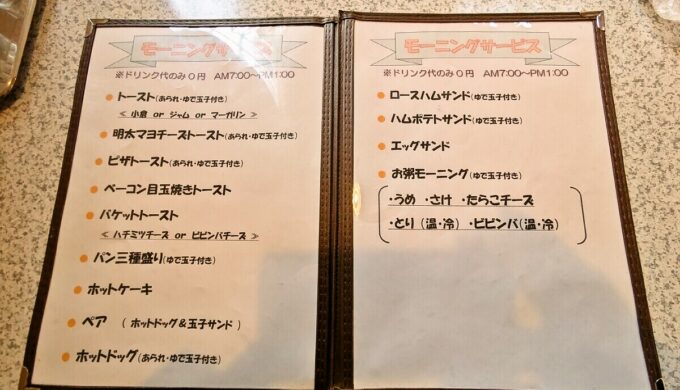 モーニングサービス
※ドリンク代のみ0円 AM7:00~PM1:00
トースト(あられ・ゆで玉子付き)
≪ 小倉 or ジャム or マーガリン ≫
明太マヨチーズトースト(あられ・ゆで玉子付き)
ピザトースト(あられ・ゆで玉子付き)
ベーコン目玉焼きトースト
バケットトースト
≪ ハチミツチーズ or ビビンバチーズ ≫
パン三種盛り(ゆで玉子付き)
ホットケーキ
ペア ( ホットドッグ&玉子サンド )
ホットドッグ(あられ・ゆで玉子付き)
モーニングサービス
※ドリンク代のみ0円 AM7:00~PM1:00
ロースハムサンド(ゆで玉子付き)
ハムポテトサンド(ゆで玉子付き)
エッグサンド
お粥モーニング(ゆで玉子付き)
・うめ ・さけ ・たらこチーズ
・とり (温・冷) ・ビビンバ(温・冷)